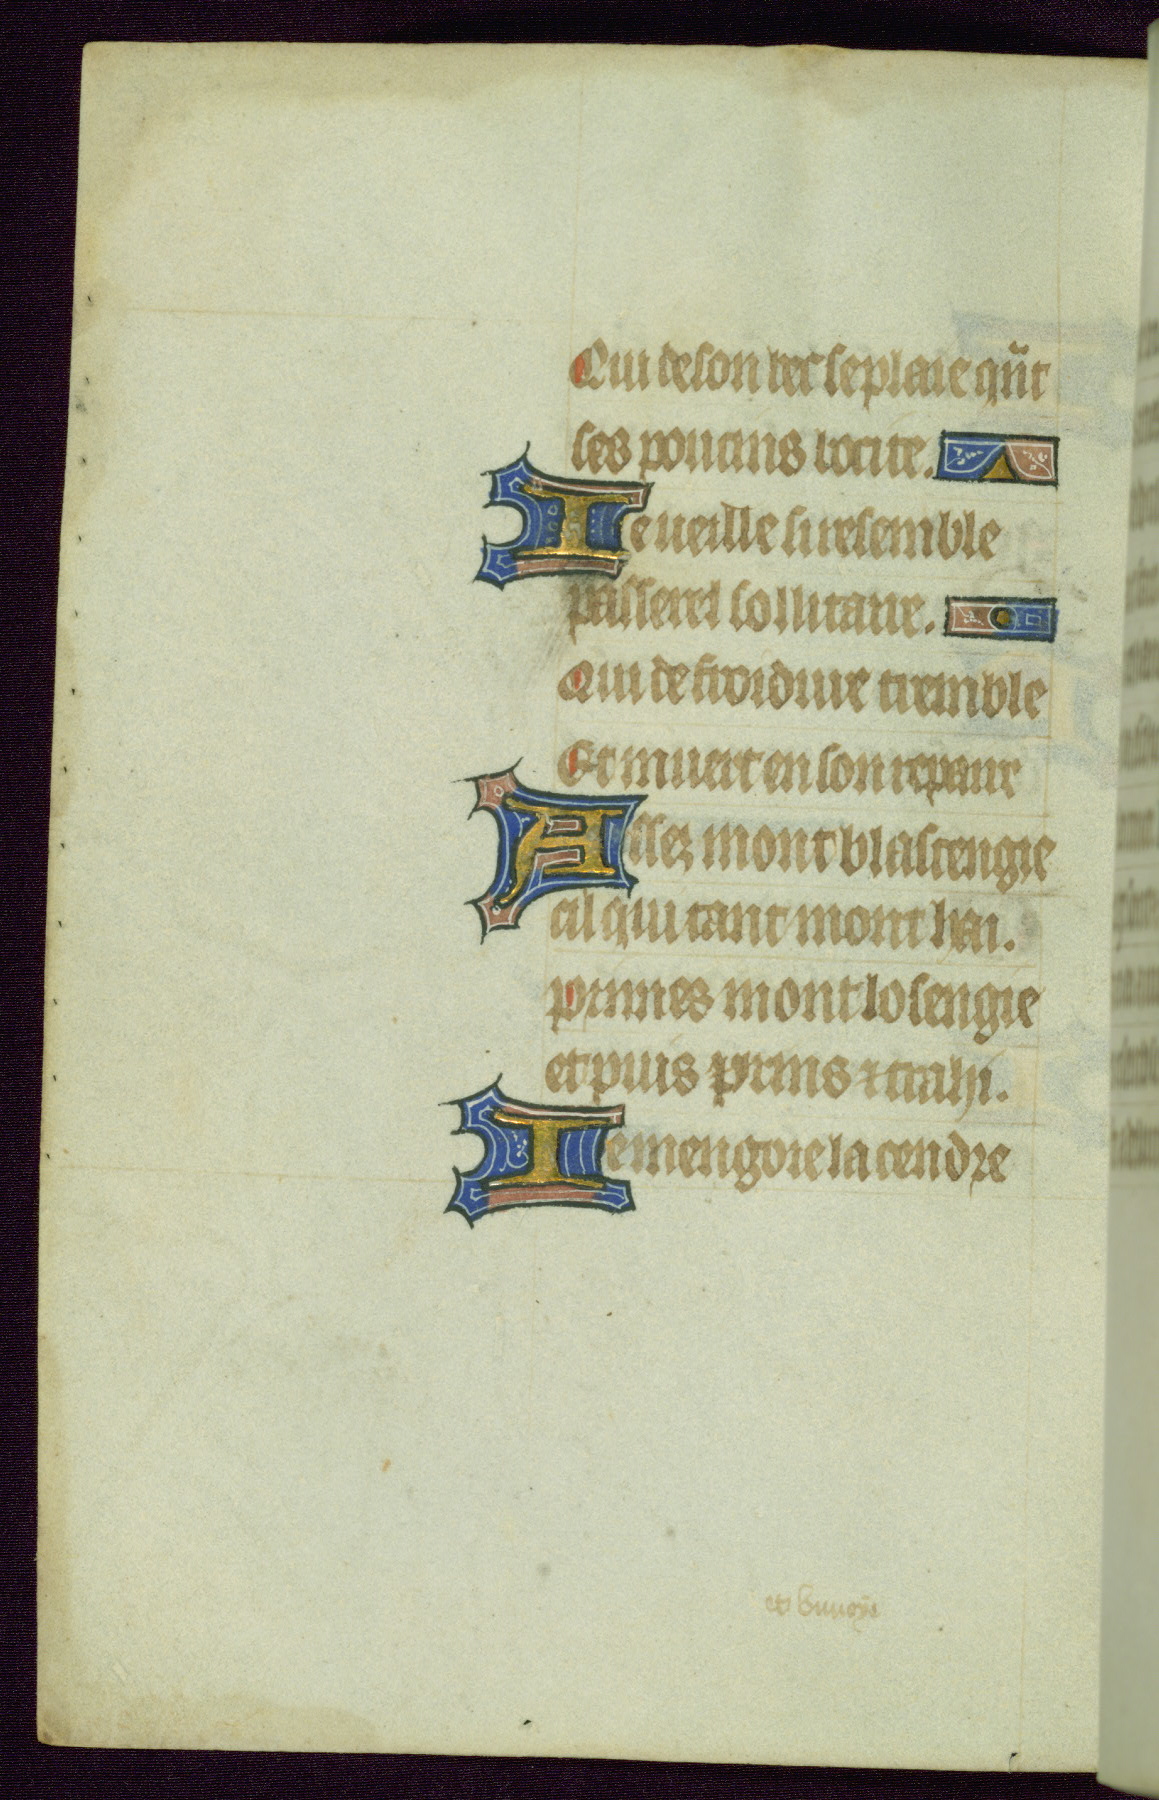 Qui de son bec se plaie qñt
ses poucins locite.
Ie ueille si resemble
passerel sollitaire.
Qui de froidure tremble
Et muert en son repaire
Assez mont blastengie
cil qui tant mont hai.
primes mont losengie
et puis prins ⁊ trahi.
Ie mengoie la cendre
et buuoye